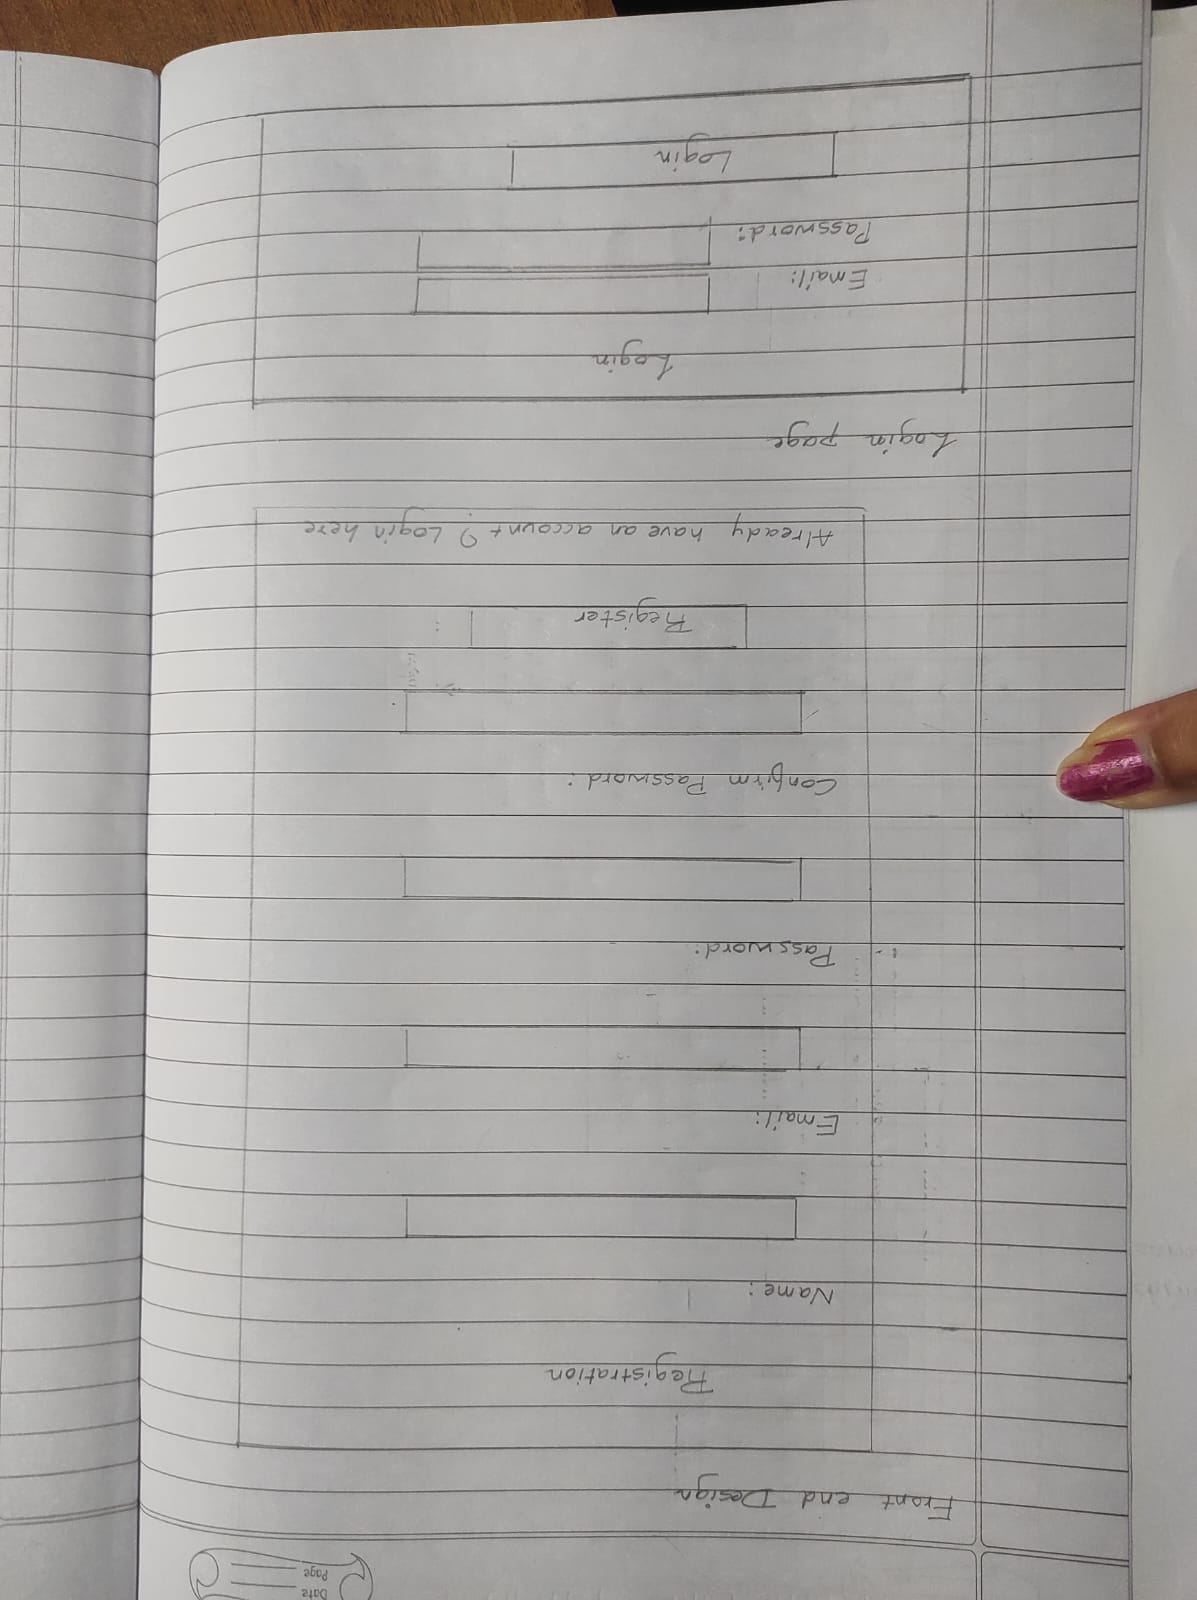 Date
Page
Front end Design
Registration
Name :
Email:
Password:
Confirm Password :
Register
Already have an account? Login here
Login page
Login
Email:
Password:
Login